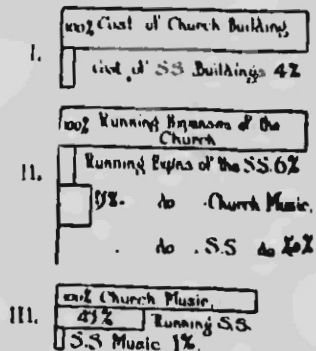 100% Cost of Church Building
I.
Cost of SS Buildings 4%
100% Running Expenses of the
Church
II.
Running Expns of the S.S. 6%
do Church Music.
. do . S.S do
III.
100% Church Music.
Running S.S.
S.S Music 1%.